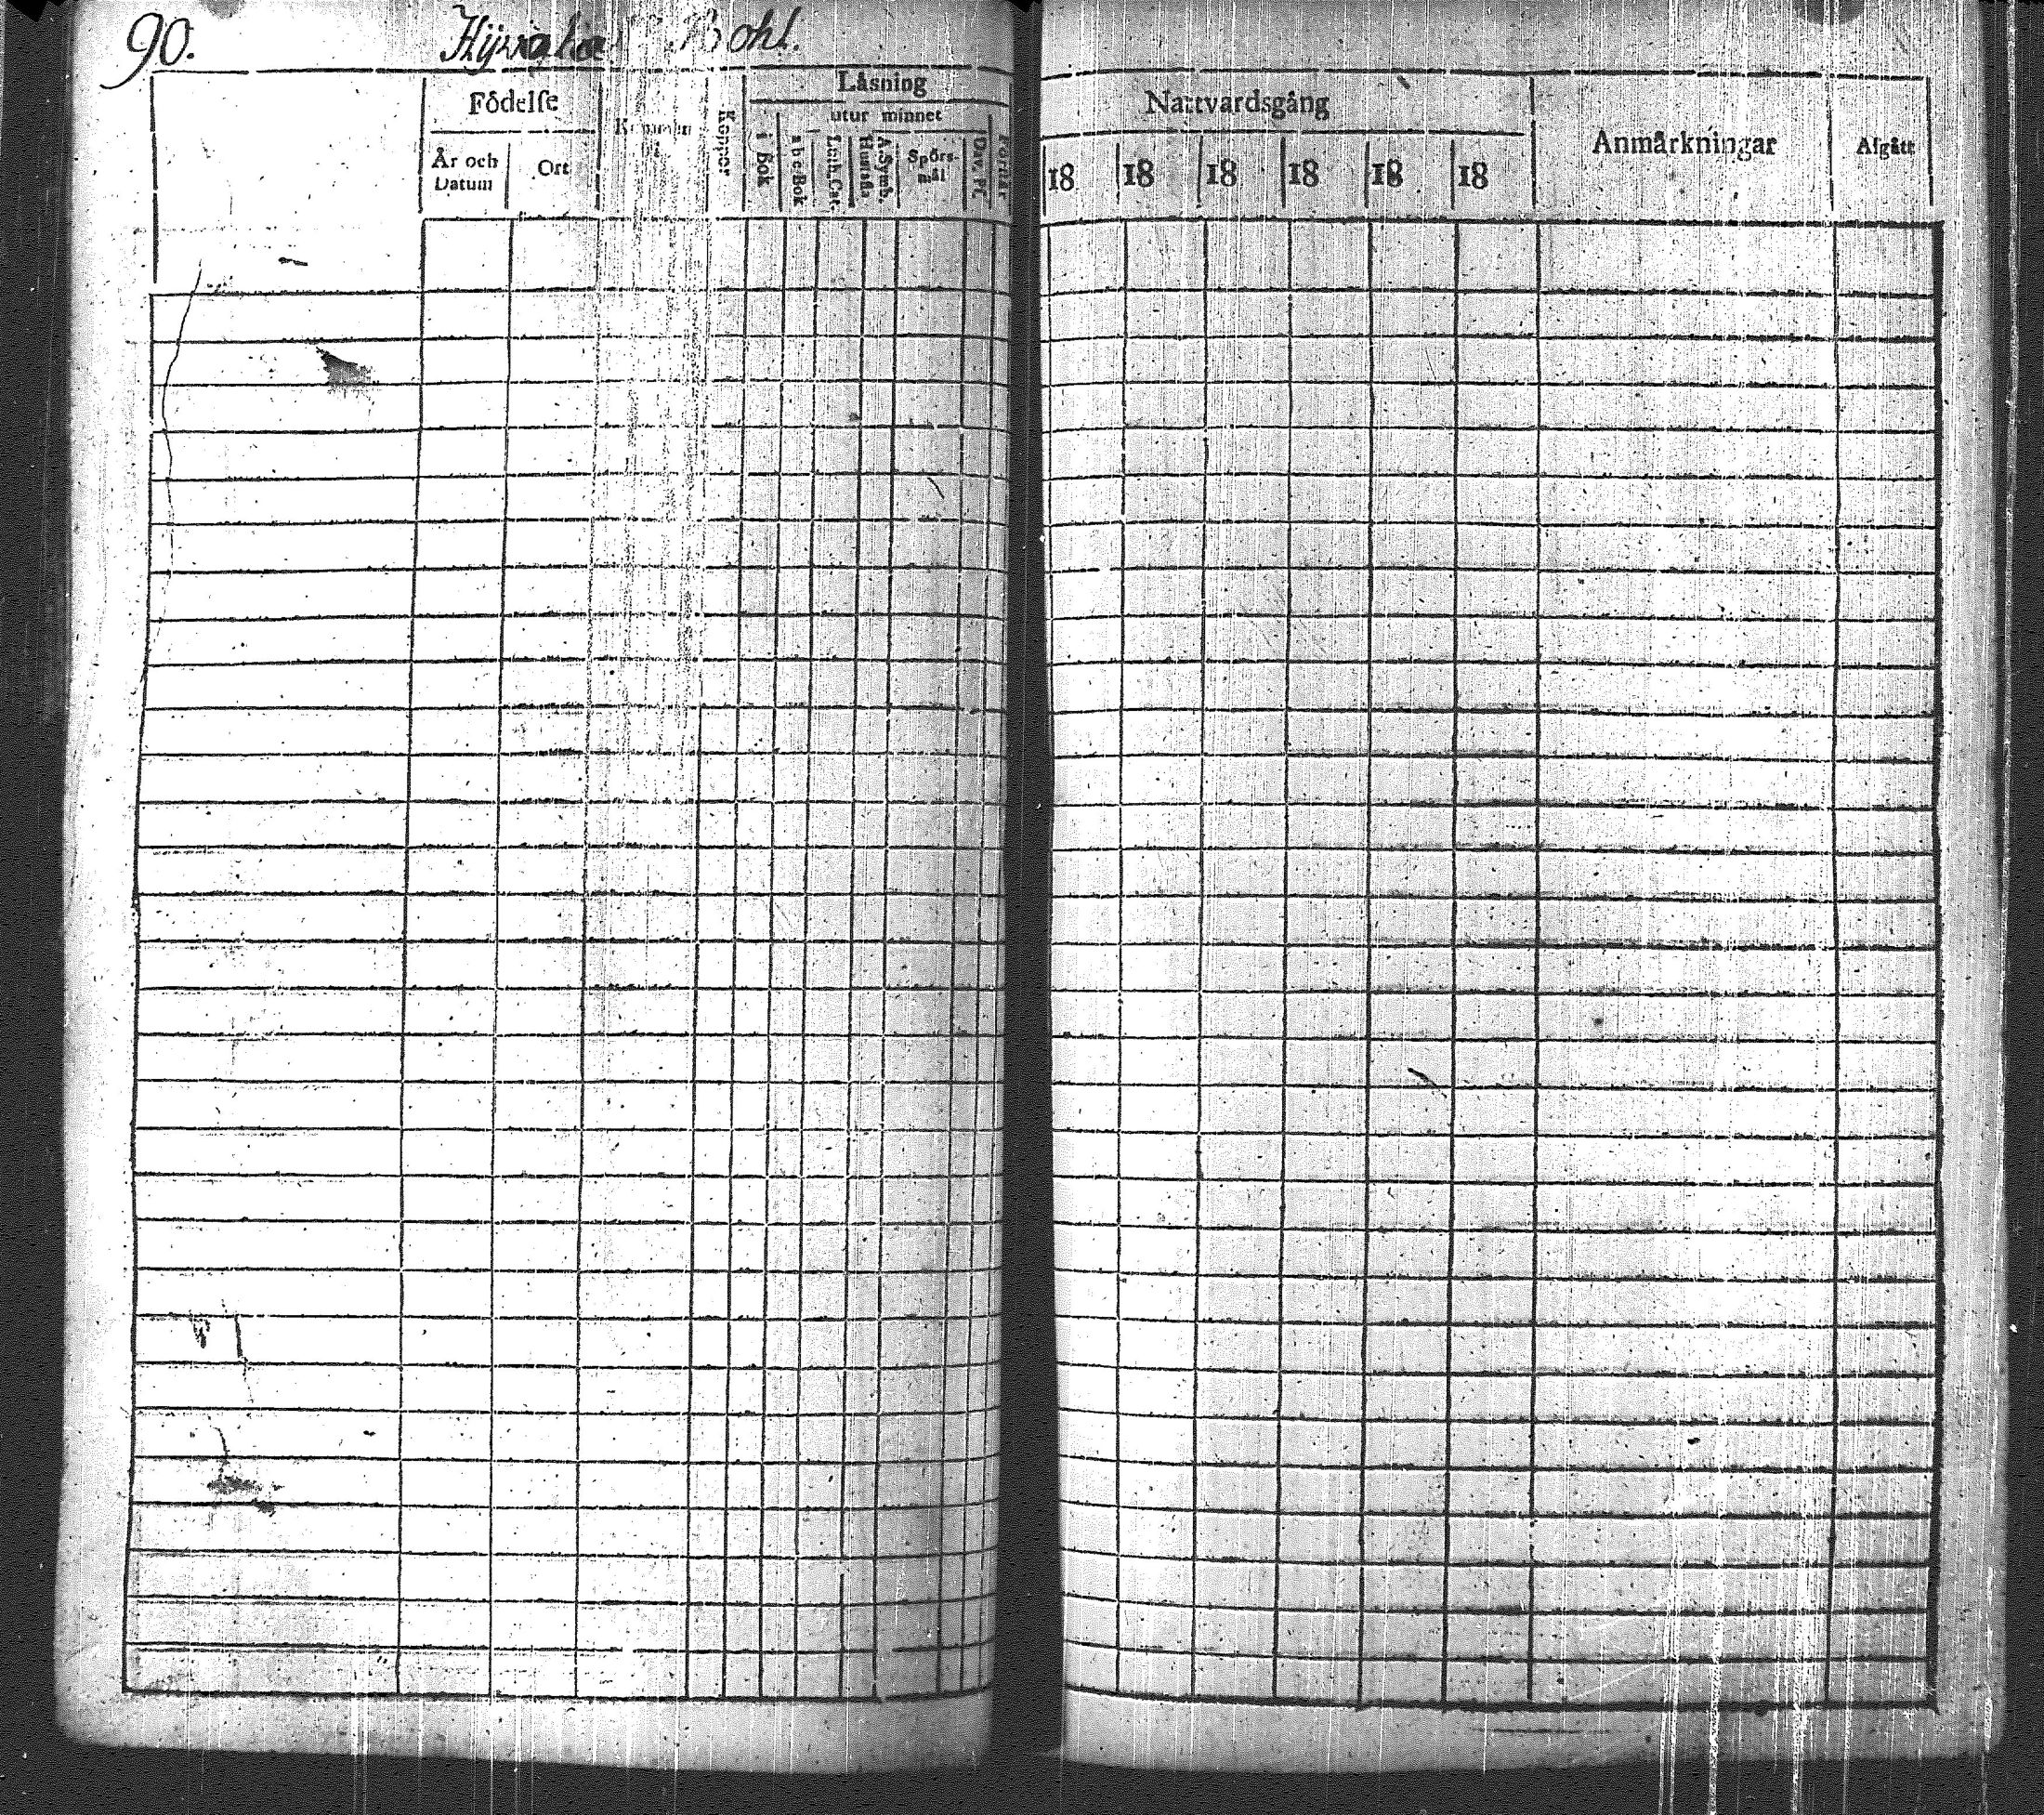 90. Bohl.
Födelse
Läsning
Nattvardsgång
Koppor
utur minnet
Anmärkningar
Afgått
År och Datum
Ort
i Bok
abc-Bok
Luth. Cat.
Hustafla
A. Symb.
Spörsmål
Dav. Ps.
18 18 18 18 18 18